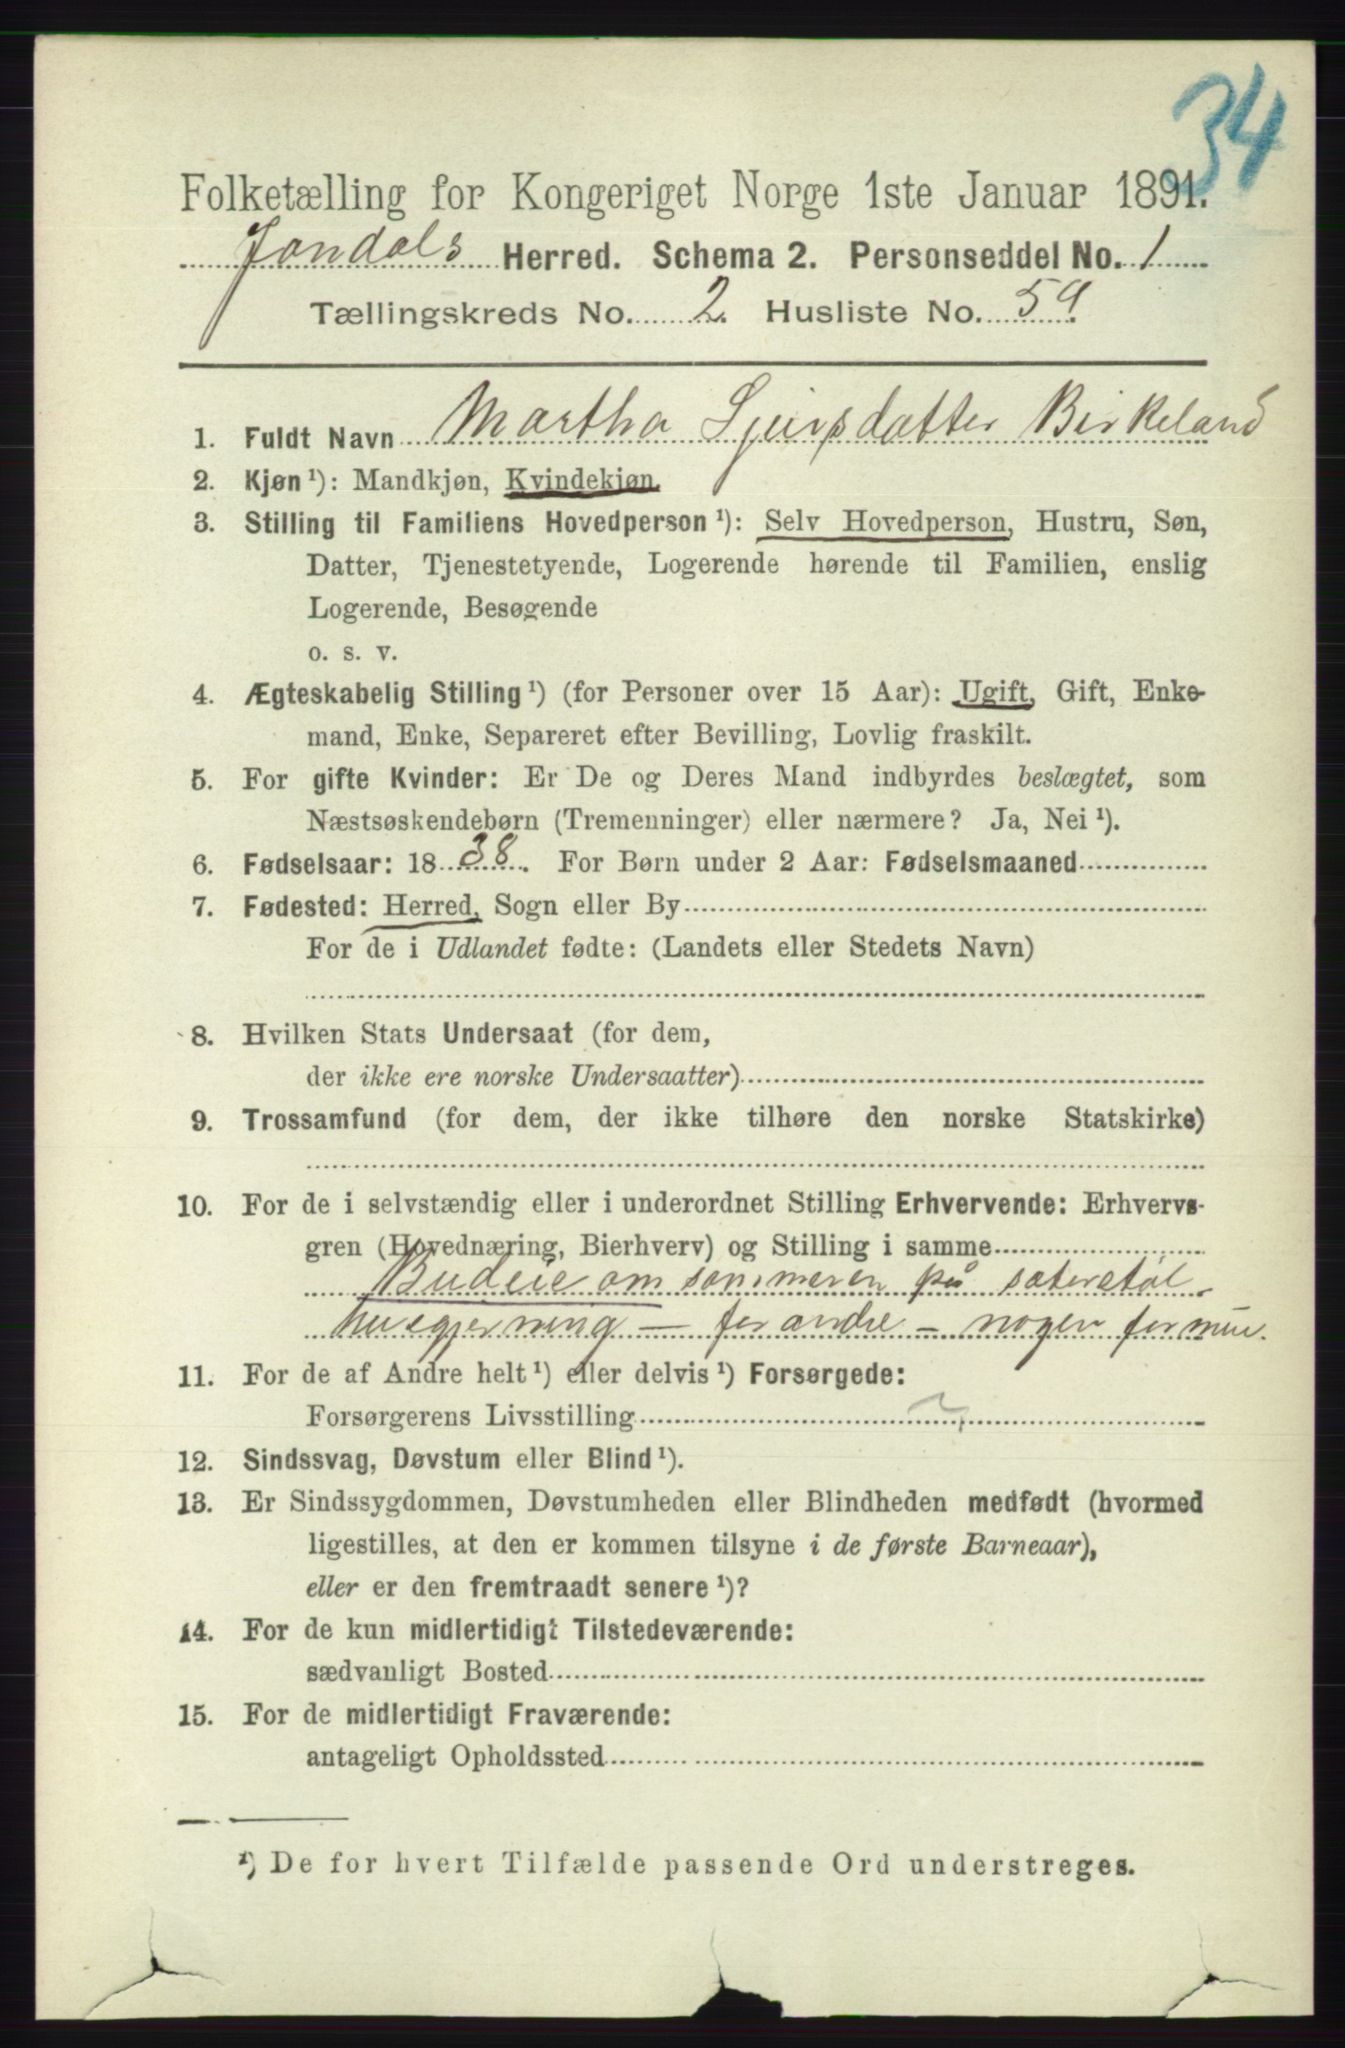 34
Folketælling for Kongeriget Norge 1ste Januar 1891.
Jondals Herred. Schema 2. Personseddel No. 1
Tællingskreds No. 2 Husliste No. 59
1. Fuldt Navn Martha Sjursdatter Birkeland
2. Kjøn ¹): Mandkjøn, Kvindekjøn.
3. Stilling til Familiens Hovedperson ¹): Selv Hovedperson, Hustru, Søn,
Datter, Tjenestetyende, Logerende hørende til Familien, enslig
Logerende, Besøgende
o. s. v.
4. Ægteskabelig Stilling ¹) (for Personer over 15 Aar): Ugift, Gift, Enke-
mand, Enke, Separeret efter Bevilling, Lovlig fraskilt.
5. For gifte Kvinder: Er De og Deres Mand indbyrdes beslægtet, som
Næstsøskendebørn (Tremenninger) eller nærmere? Ja, Nei ¹).
6. Fødselsaar: 1838. For Børn under 2 Aar: Fødselsmaaned
7. Fødested: Herred, Sogn eller By
For de i Udlandet fødte: (Landets eller Stedets Navn)
8. Hvilken Stats Undersaat (for dem,
der ikke ere norske Undersaatter)
9. Trossamfund (for dem, der ikke tilhøre den norske Statskirke)
10. For de i selvstændig eller i underordnet Stilling Erhvervende: Erhvervs-
gren (Hovednæring, Bierhverv) og Stilling i samme
Budeie om sommeren på sæterstøl
husgjerning – for andre – nogen formue.
11. For de af Andre helt ¹) eller delvis ¹) Forsørgede:
Forsørgerens Livsstilling
12. Sindssvag, Døvstum eller Blind ¹).
13. Er Sindssygdommen, Døvstumheden eller Blindheden medfødt (hvormed
ligestilles, at den er kommen tilsyne i de første Barneaar),
eller er den fremtraadt senere ¹)?
14. For de kun midlertidigt Tilstedeværende:
sædvanligt Bosted
15. For de midlertidigt Fraværende:
antageligt Opholdssted
¹) De for hvert Tilfælde passende Ord understreges.